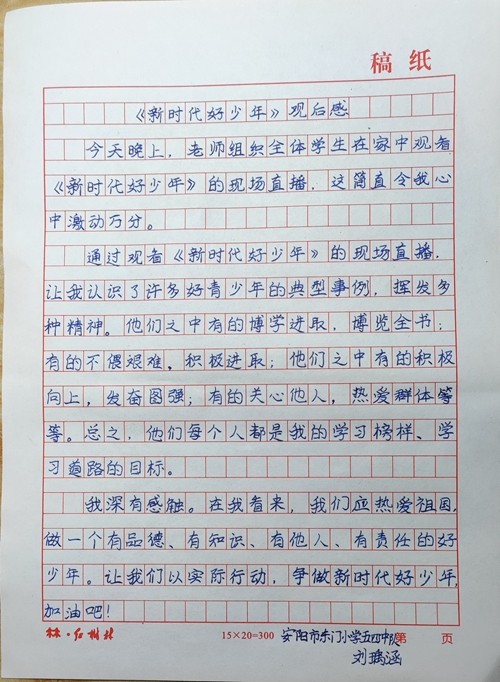 稿纸
《新时代好少年》观后感
今天晚上，老师组织全体学生在家中观看
《新时代好少年》的现场直播，这简直令我心
中激动万分。
通过观看《新时代好少年》的现场直播，
让我认识了许多好青少年的典型事例，挥发多
种精神。他们之中有的博学进取，博览全书；
有的不偎艰难，积极进取；他们之中有的积极
向上，发奋图强；有的关心他人，热爱群体等
等。总之，他们每个人都是我的学习榜样、学
习道路的目标。
我深有感触。在我看来，我们应热爱祖国，
做一个有品德、有知识、有他人、有责任的好
少年。让我们以实际行动，争做新时代好少年，
加油吧！
15×20=300 安阳市东门小学五四中队 第 页
刘瑀涵